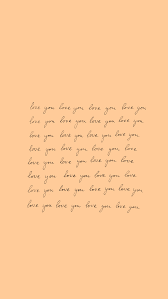 love you love you love you love you
love you love you love you love you
love you love you love you love you
love you love you love you love you
love you love you love you love you
love you love you love you love you
love you love you love you love you
love you love you love you love you